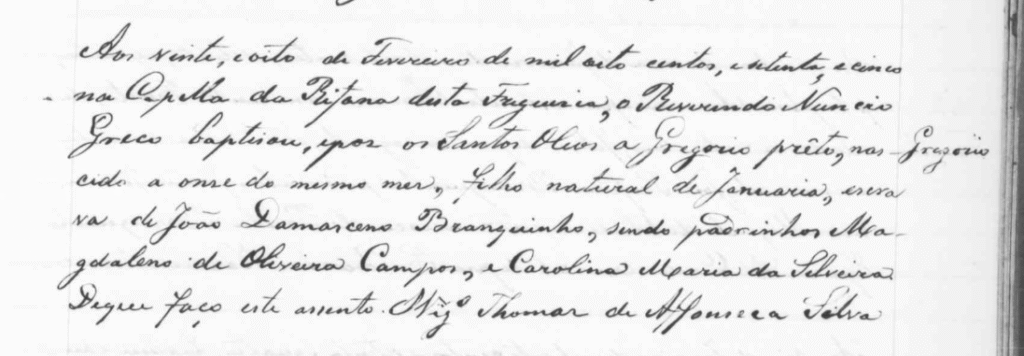 Aos vinte, e oito de Fevereiro de mil oito centos, e setenta, e cinco
na Capella da Rifana desta Freguesia, o Reverendo Nuncio
Greco baptisou, e poz os Santos Oleos a Gregorio prêto, nas-
Gregorio
cido a onse do mesmo mez, filho natural de Januaria, escra
va de João Damasceno Branquinho, sendo padrinhos Ma-
gdaleno de Oliveira Campos, e Carolina Maria da Silveira
Deque faço este assento. Vigº Thomaz de Affonseca Silva